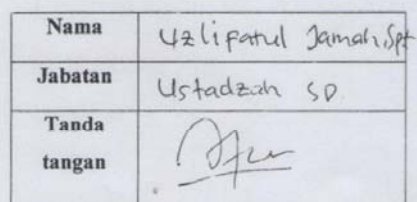 Nama Uzlifatul Jamah, Spt
Jabatan Ustadzah SD
Tanda
tangan